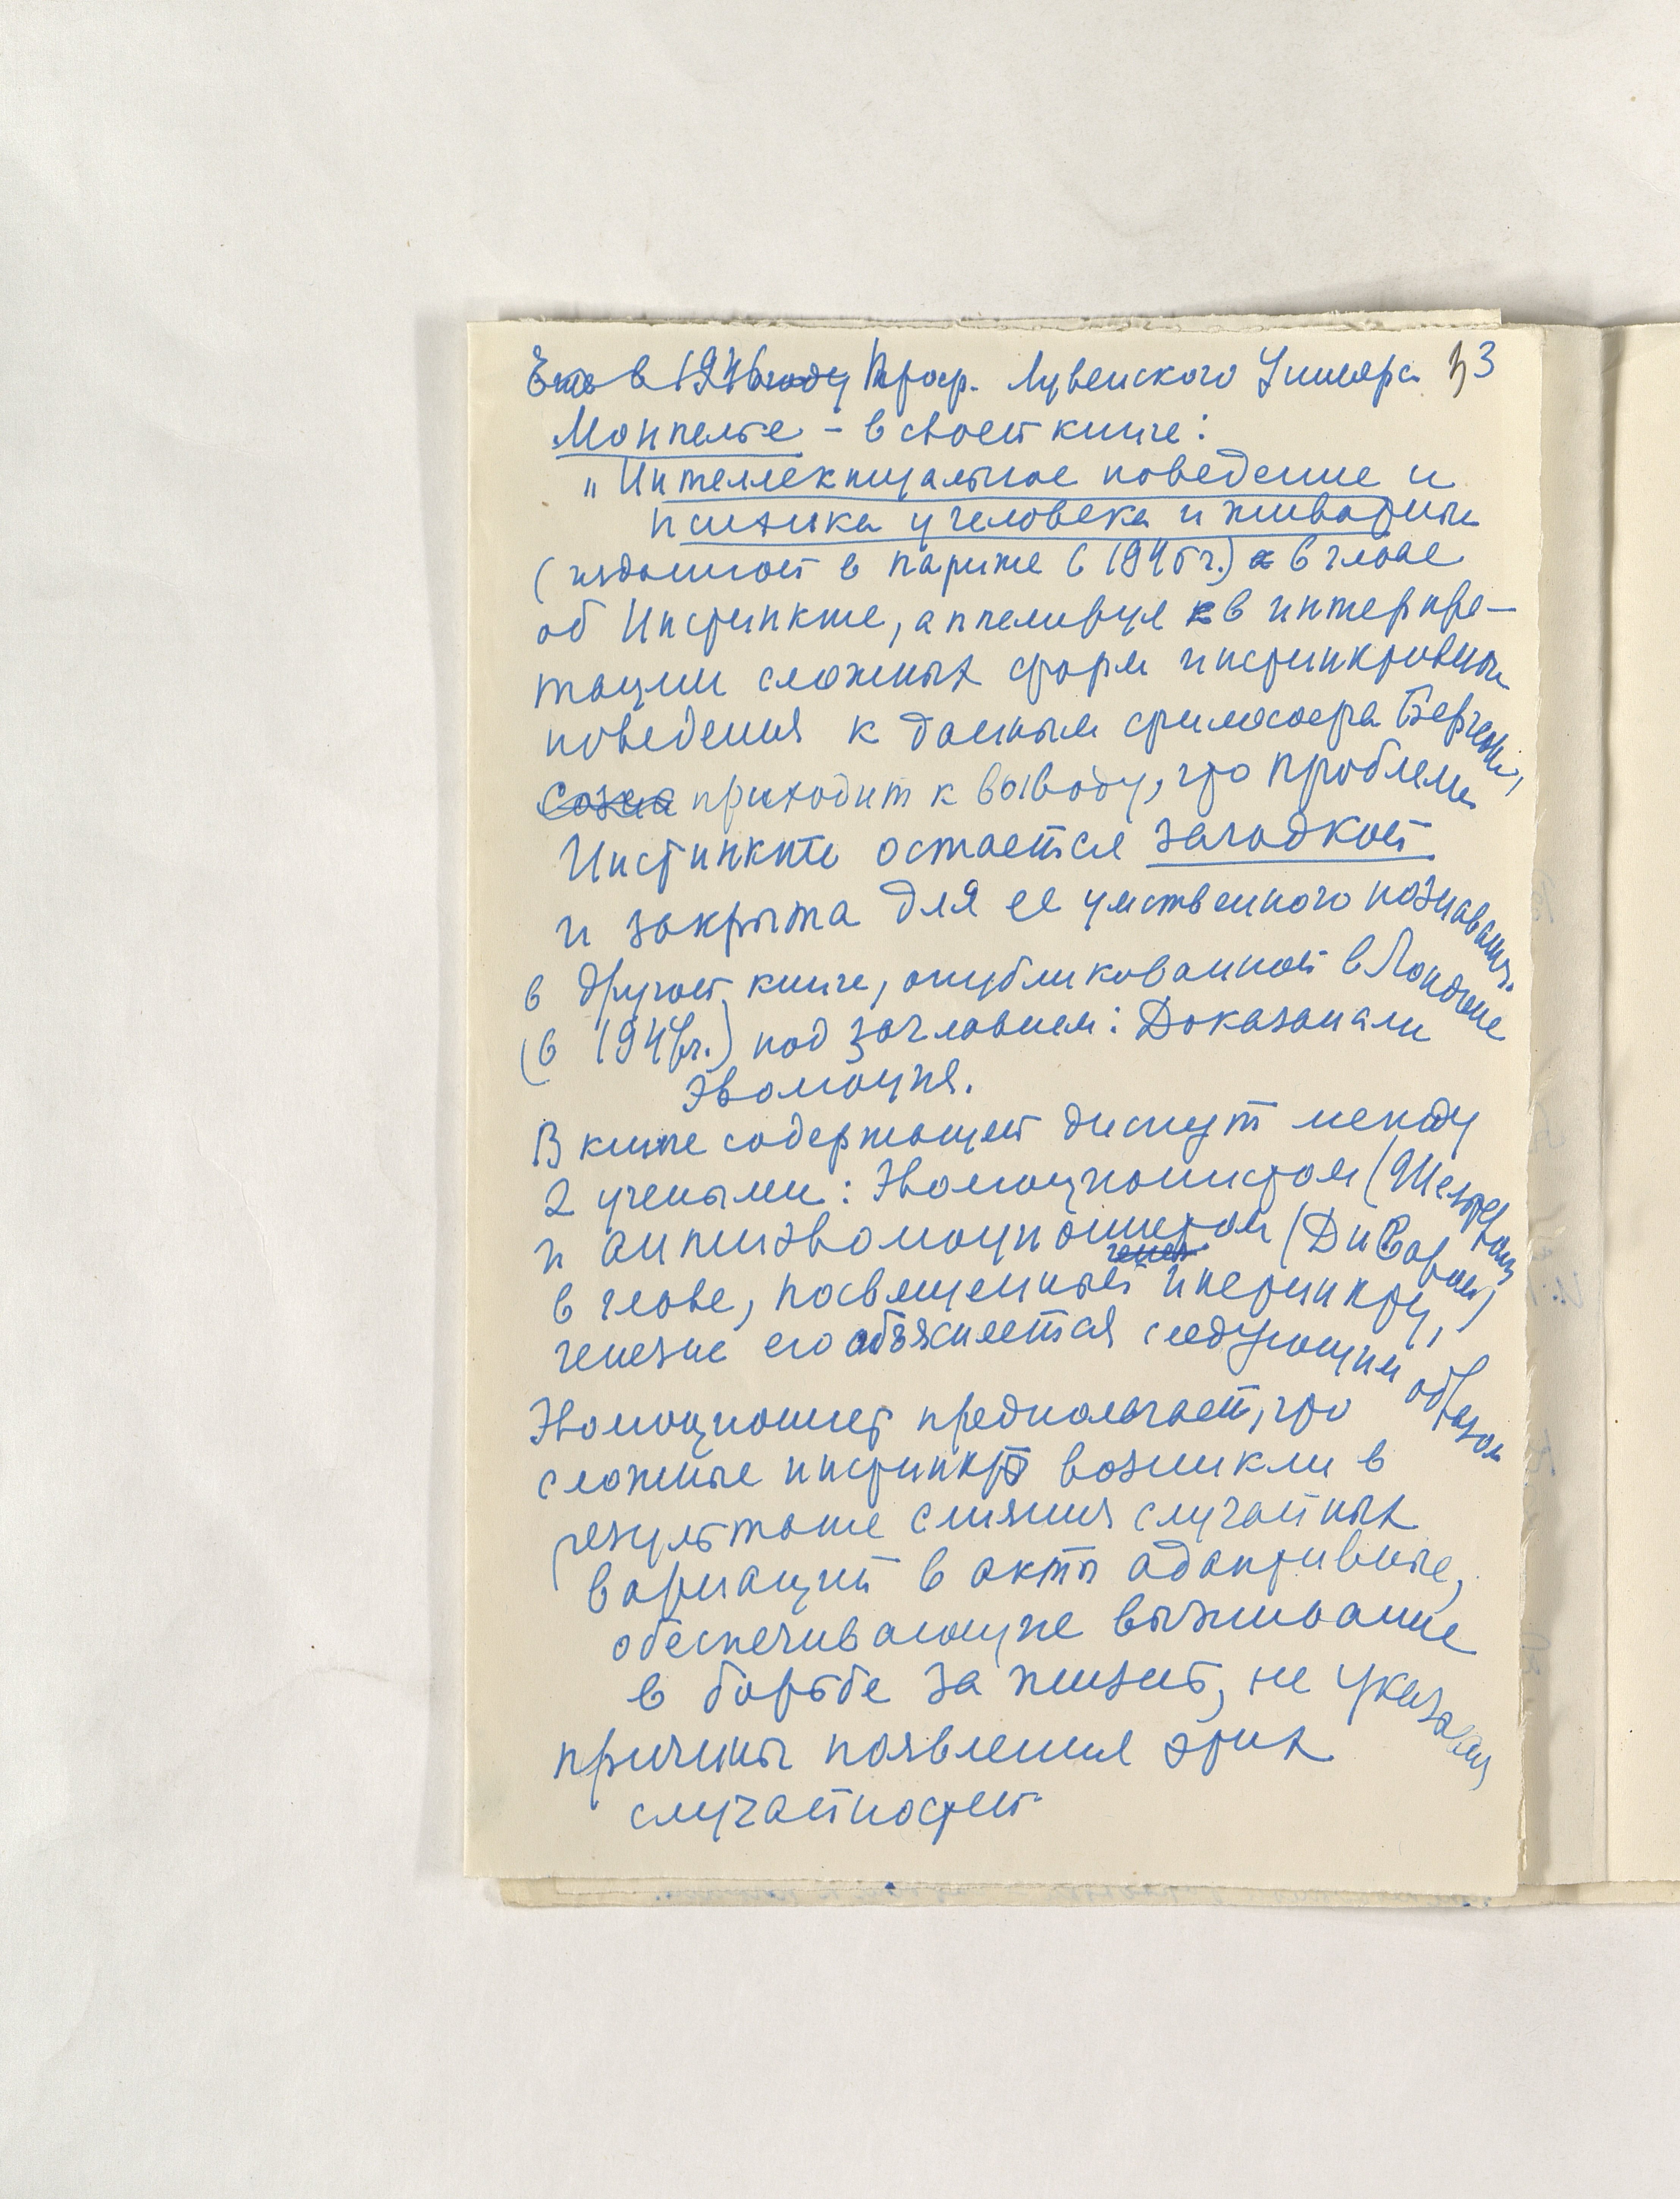 Еще в 1946 году Проф. Лувенского Универс. 33
Монпелье – в своей книге:
„Интеллектуальное поведение и
психика у человека и животных
(изданной в Париже в 1946 г.) в главе
об Инстинкте, аппелируя к в интерпре–
тации сложных форм инстинктивных
поведения к данным философа Бергсона,
Созна приходит к выводу, что проблема
Инстинкта остается загадкой
и закрыта для ее умственного познавания.
в другой книге, опубликованной в Лондоне
(в 1947 г.) под заглавием: Доказана ли
Эволюция.
В книге содержащей диспут между
2 учеными: Эволюционистом
и антиэволюционистом (Ди Варом)
в главе, посвященный Инстинкту,
генезис его объясняется следующим образом
Эволюционист предполагает, что
сложные инстинкты возникли в
результате слияния случайных
вариаций в акты адаптивные,
обеспечивающие выживание
в борьбе за жизнь, не указывая
причины появления этих
случайностей